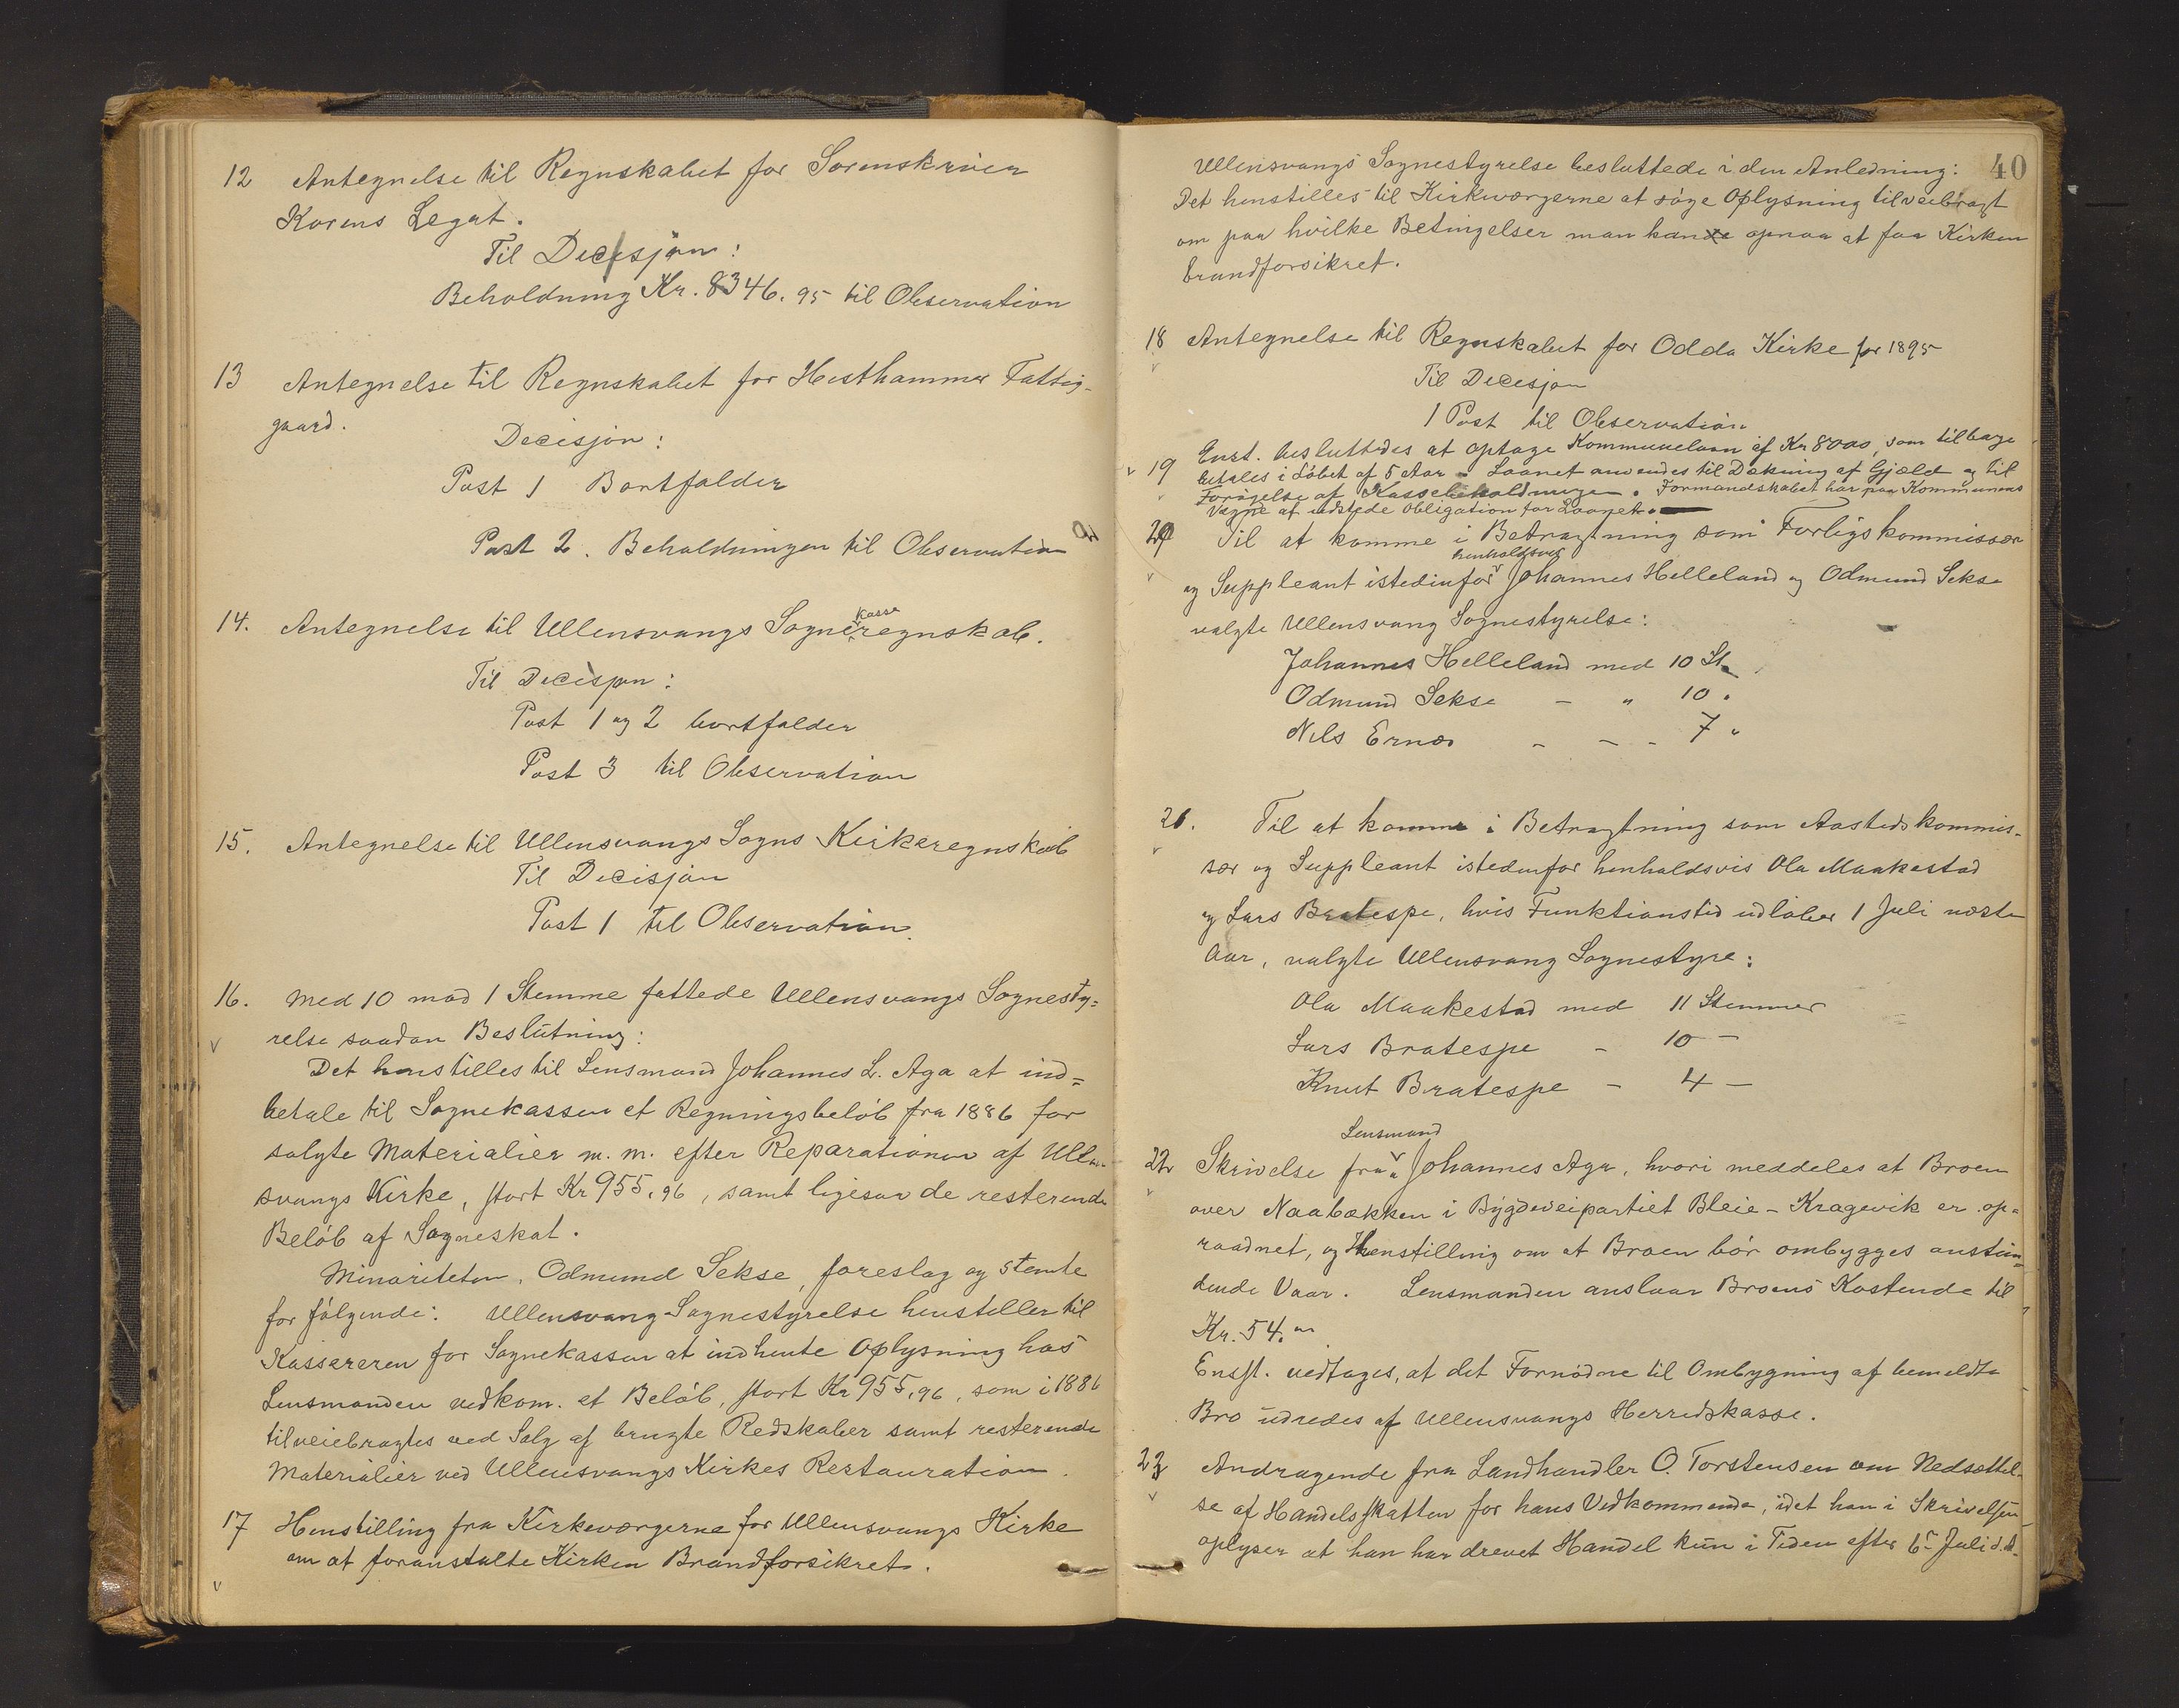 12 Antegnelse til Regnskabet for Sorenskriver
Korens Legat.
Til Decisjon:
Beholdning Kr. 8346.95 til Observation
13 Antegnelse til Regnskabet for Hesthammer Fattig-
gaard.
Decisjon:
Post 1 Bortfalder
Post 2. Beholdningen til Observation
14. Antegnelse til Ullensvangs Sognekasseregnskab.
Til Decisjon:
Post 1 og 2 bortfalder
Post 3 til Observation
15. Antegnelse til Ullensvangs Sogns Kirkeregnskab
Til Decisjon
Post 1 til Observation.
16. Med 10 mod 1 Stemme fattede Ullensvangs Sognesty=
relse saadan Beslutning:
Det henstilles til Lensmand Johannes L. Aga at ind=
betale til Sognekassen et Regningsbeløb fra 1886 for
solgte Materialier m. m. efter Reparationen af Ullen-
svangs Kirke, stort Kr 955,96, samt ligesaa de resterende
Beløb af Sogneskat.
Minoriteten, Odmund Sekse, foreslog og stemte
for følgende: Ullensvang Sognestyrelse henstiller til
Kassereren for Sognekassen at indhente Oplysning hos
Lensmanden vedkom. et Beløb, stort Kr 955,96, som i 1886
tilveiebragtes ved Salg af brugte Redskaber samt resterende
Materialier ved Ullensvangs Kirkes Restauration.
17 Henstilling fra Kirkeværgerne for Ullensvangs Kirke
om at foranstalte Kirken Brandforsikret.
40
Ullensvangs Sognestyrelse besluttede i den Anledning:
Det henstilles til Kirkeværgerne at søge Oplysning tilveibragt
om paa hvilke Betingelser man kan opnaa at faa Kirken
brandforsikret.
18 Antegnelse til Regnskabet for Odda Kirke for 1895
Til Decisjon
1 Post til Observation
19 Enst. besluttedes at optage Kommunelaan af Kr 8000, som tilbage
betales i Løbet af 5 Aar. Laanet anvendes til Dækning af Gjæld og til
Forøgelse af Kassebeholdningen. Formandskabet har paa Kommunens
Vegne at udstede Obligation for Laanet.
20 Til at komme i Betragtning som Forligskommissær
og Suppleant istedenfor henholdsvis Johannes Helleland og Odmund Sekse
valgte Ullensvang Sognestyrelse:
Johannes Helleland med 10 St.
Odmund Sekse - " 10 "
Nils Ernes - - - 7 "
21. Til at komme i Betragtning som Aastedskommis-
sær og Suppleant istedenfor henholdsvis Ola Maakestad
og Lars Bratespe, hvis Funktionstid udløber 1 Juli næste
Aar, valgte Ullensvang Sognestyre:
Ola Maakestad med 11 Stemmer
Lars Bratespe - 10 -
Knut Bratespe - 4 -
22 Skrivelse fra Lensmand Johannes Aga, hvori meddeles at Broen
over Naabækken i Bygdeveipartiet Bleie - Kragevik er op-
raadnet, og Henstilling om at Broen bør ombygges anstun=
dende Vaar. Lensmanden anslaar Broens Kostende til
Kr. 54.00
Enst. vedtages, at det Fornødne til Ombygning af bemeldte
Bro udredes af Ullensvangs Herredskasse.
23 Andragende fra Landhandler O. Torstensen om Nedsættel-
se af Handelsskatten for hans Vedkommende, idet han i Skrivelsen
oplyser at han har drevet Handel kun i Tiden efter 6 Juli d.A.